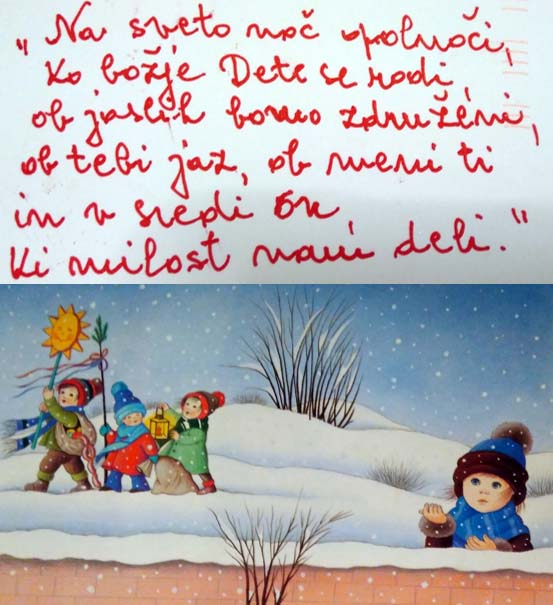 „Na sveto noč opolnoči,
ko božje Dete se rodi,
ob jaslih bomo združeni,
ob tebi jaz, ob meni ti
in v sredi On
ki milost nam deli."